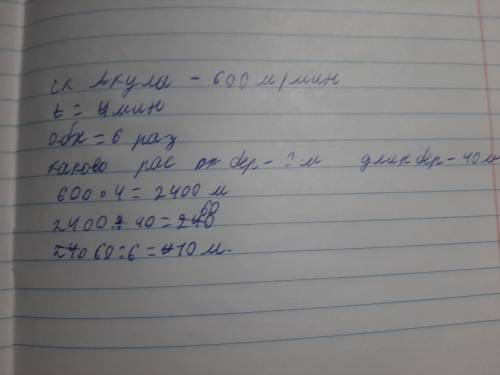 ск Акулы - 600 м/мин
t = 4 мин
обх = 6 раз
каково рас от бер - ? м длин бер - 40 м
600 · 4 = 2400 м
2400 : 40 = 60
60 : 6 = 10 м.